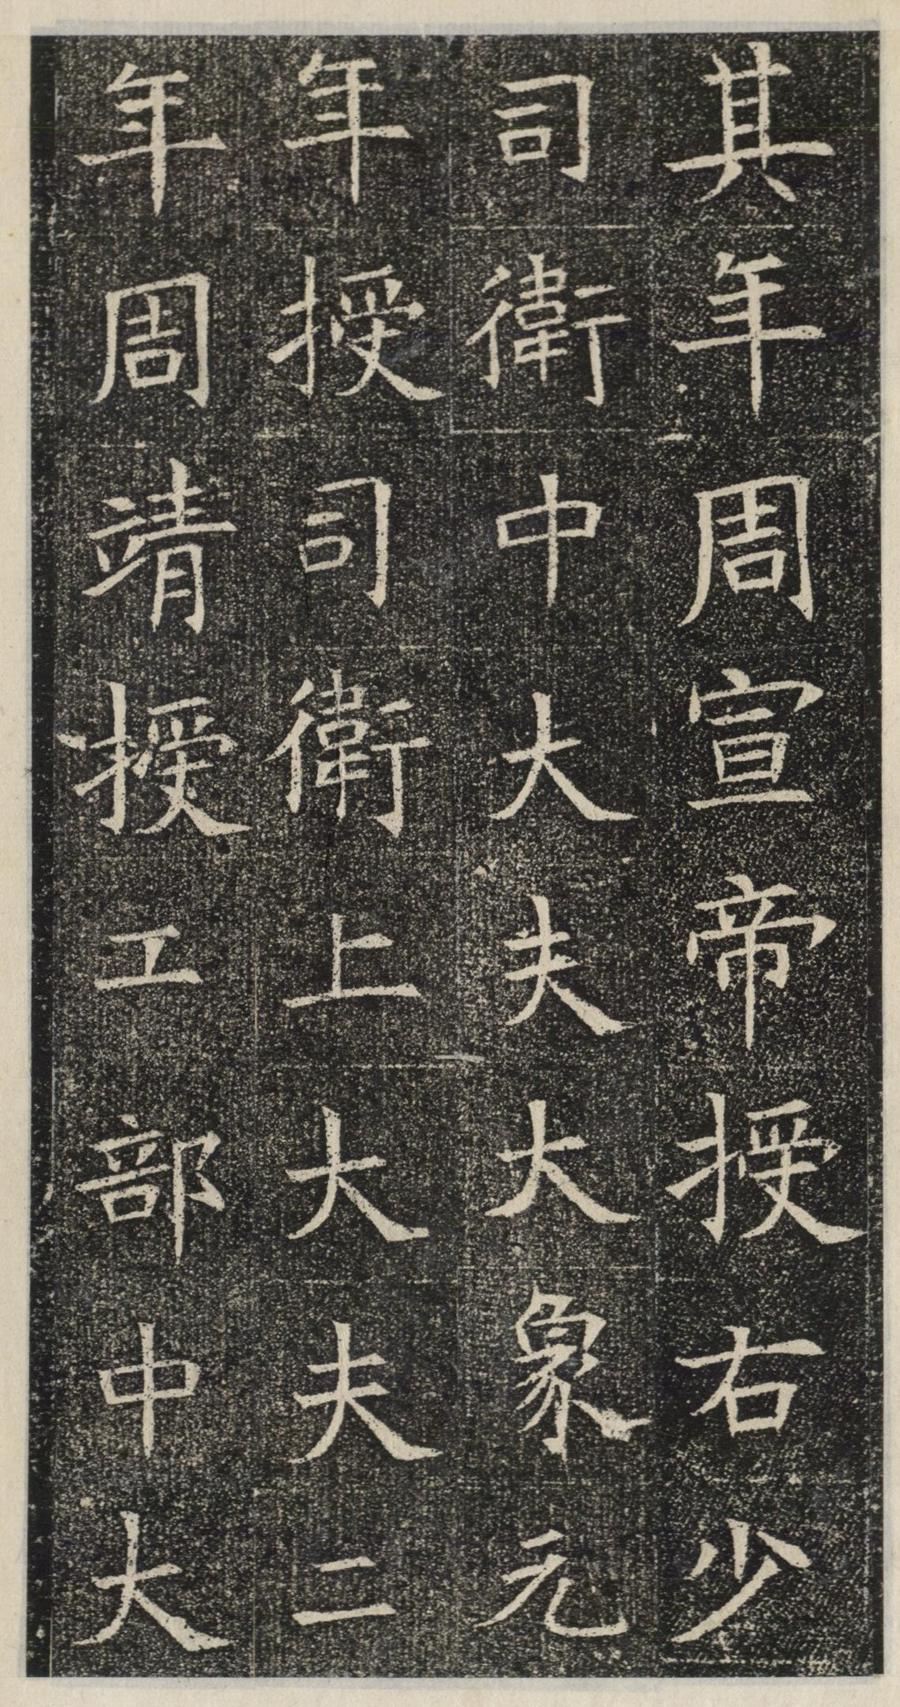 其年周宣帝授右少
司衛中大夫大象元
年授司衛上大夫二
年周靖授工部中大